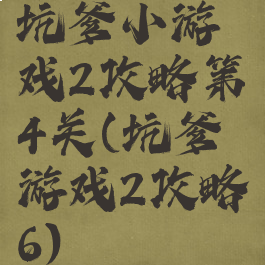 坑爹小游
戏2攻略第
4关(坑爹
游戏2攻略
6)